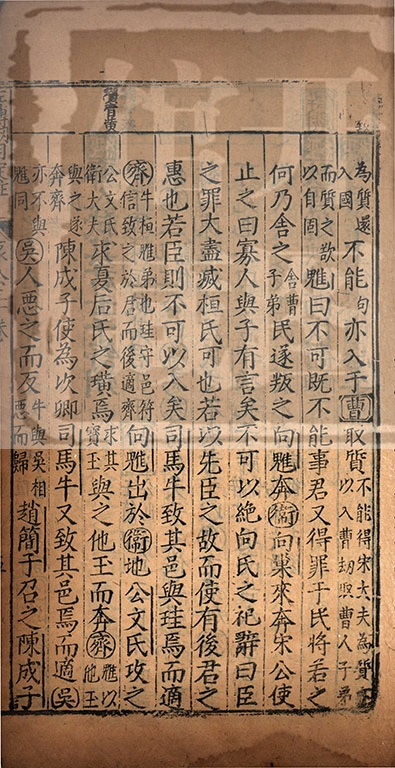 為質還入國不能句亦入于曹取質不能得宋大夫為質以入曹劫曹人子弟
而質之欲以自固魋曰不可既不能事君又得罪于民將若之
何乃舍之舍曹子弟民遂叛之向魋奔衛向巢來奔宋公使
止之曰寡人與子有言矣不可以絶向氏之祀辭曰臣
之罪大盡滅桓氏可也若以先臣之故而使有後君之
惠也若臣則不可以入矣司馬牛致其邑與珪焉而適
齊牛桓魋弟也珪守邑符信致之於君而後適齊向魋出於衛地公文氏攻之
璜音黃
公文氏衛大夫求夏后氏之璜焉求其寶玉與之他玉而奔齊魋以他玉
與之遂奔齊陳成子使為次卿司馬牛又致其邑焉而適吳
亦不與魋同吳人惡之而反牛與吳相惡而歸趙簡子召之陳成子